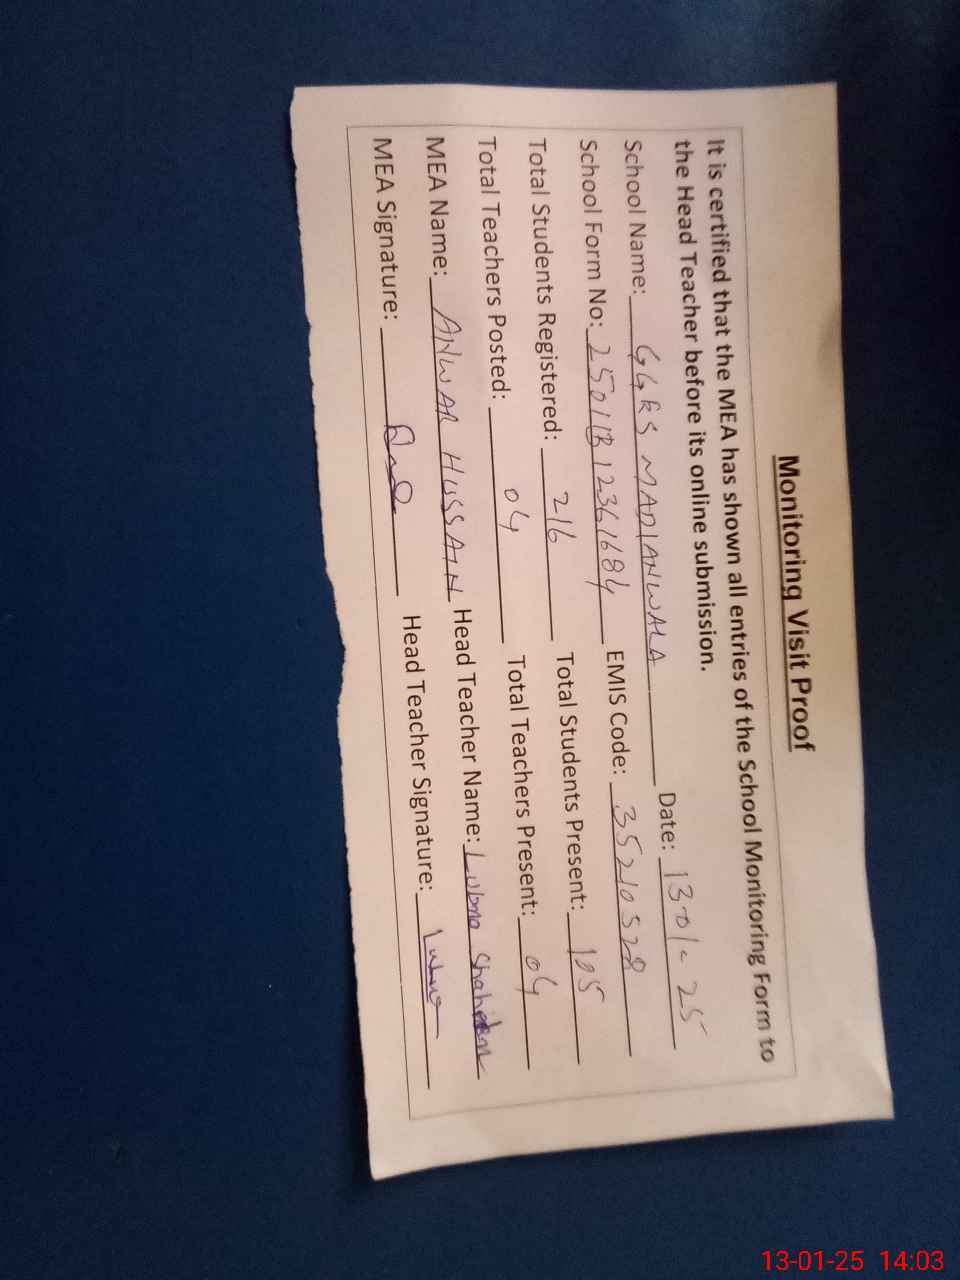 Monitoring Visit Proof
It is certified that the MEA has shown all entries of the School Monitoring Form to
the Head Teacher before its online submission.
School Name: GGES MADIANWALA Date: 13-01-25
School Form No: 25011312361684 EMIS Code: 35210528
Total Students Registered: 216 Total Students Present: 105
Total Teachers Posted: 04 Total Teachers Present: 04
MEA Name: ANWAR HUSSAIN Head Teacher Name: Lubna Shaheen
MEA Signature: Head Teacher Signature: Lubna
13-01-25 14:03